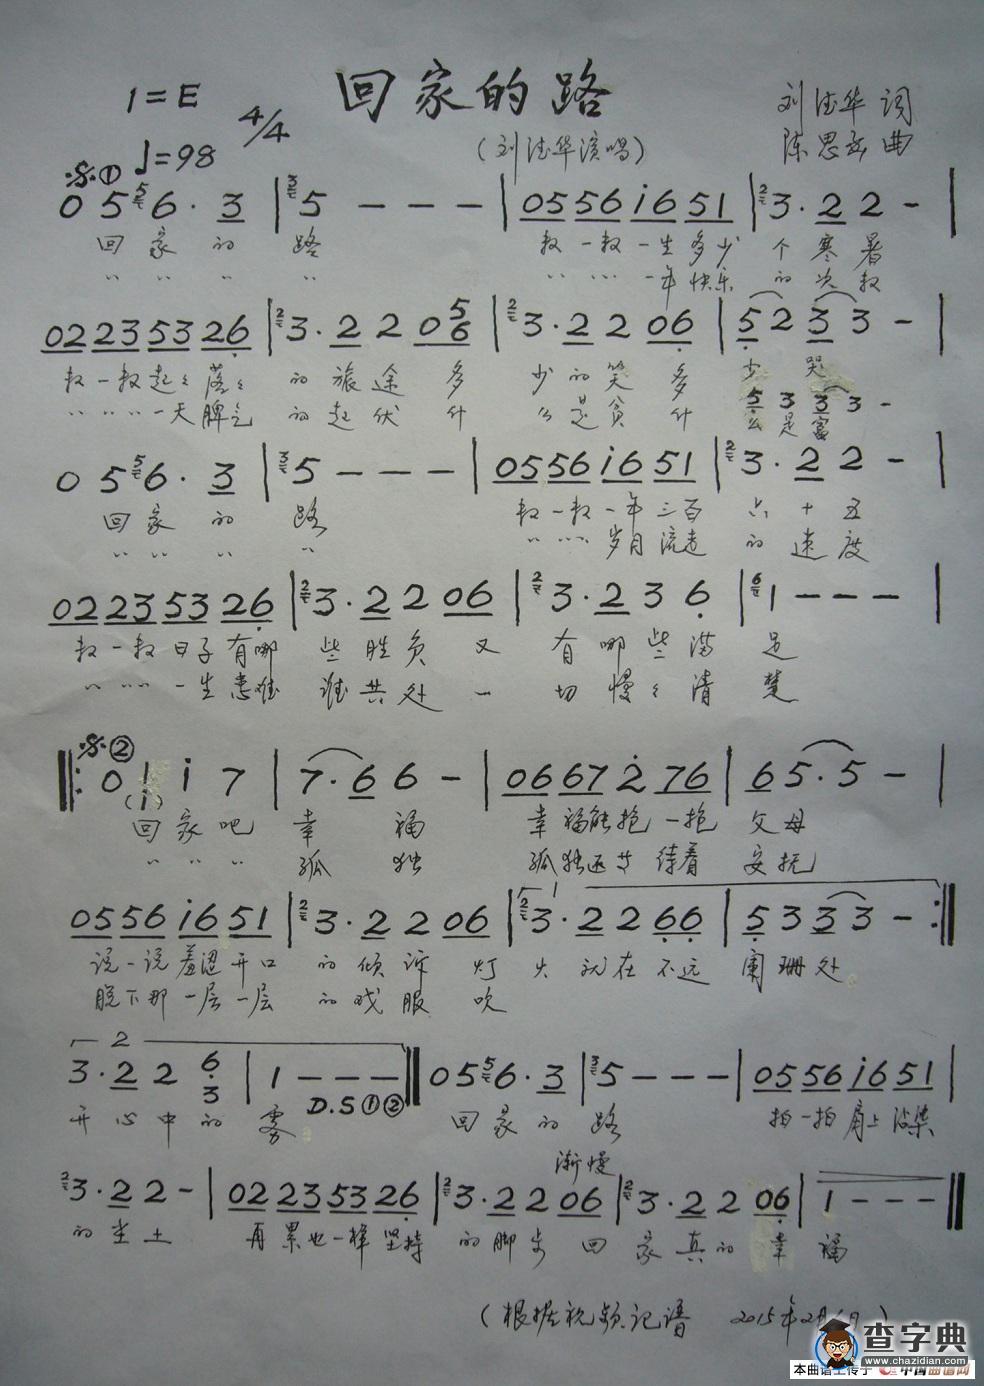 回家的路
1=E 4/4
刘德华 词
♩=98
(刘德华演唱)
陈思函 曲
𝄋①
0 5 6· 3 | 5 - - - | 05 56 i6 51 | 3· 2 2 - |
回家的路 数一数一生多少个寒暑
〃〃〃〃 〃〃〃一年快乐的次数
02 23 53 26 | 3· 2 2 06 | 3· 2 2 06 | 5 2 3 3 - |
数一数起々落々的旅途 多少的笑多少哭
〃〃〃一天脾气的起伏 什么是贫什么是富
5 3 3 3 -
0 5 6· 3 | 5 - - - | 05 56 i6 51 | 3· 2 2 - |
回家的路 数一数一年三百六十五
〃〃〃〃 〃〃〃岁月流走的速度
02 23 53 26 | 3· 2 2 06 | 3· 2 3 6 | 1 - - - |
数一数日子有哪些胜负 又有哪些满足
〃〃〃一生患难谁共处 一切慢々清楚
𝄋②
‖: 0 i i 7 | 7· 6 6 - | 06 67 2 76 | 6 5· 5 - |
(1)
回家吧 幸福 幸福能抱一抱父母
〃〃〃 孤独 孤独还等待着安抚
05 56 i6 51 | 3· 2 2 06 | 3· 2 2 66 | 5 3 3 3 - :‖
说一说羞涩开口的倾诉 灯火就在不远阑珊处
脱下那一层一层的戏服 吹
3· 2 2 6 3 | 1 - - - ‖ 0 5 6· 3 | 5 - - - | 05 56 i6 51 |
D.S①②
开心中的雾 回家的路 拍一拍肩上沾染
渐慢
3· 2 2 - | 02 23 53 26 | 3· 2 2 06 | 3· 2 2 06 | 1 - - - ‖
的尘土 再累也一样坚持的脚步 回家真的幸福
(根据视频记谱 2015年2月 日)
查字典
www.chazidian.com
本曲谱上传于 中国曲谱网